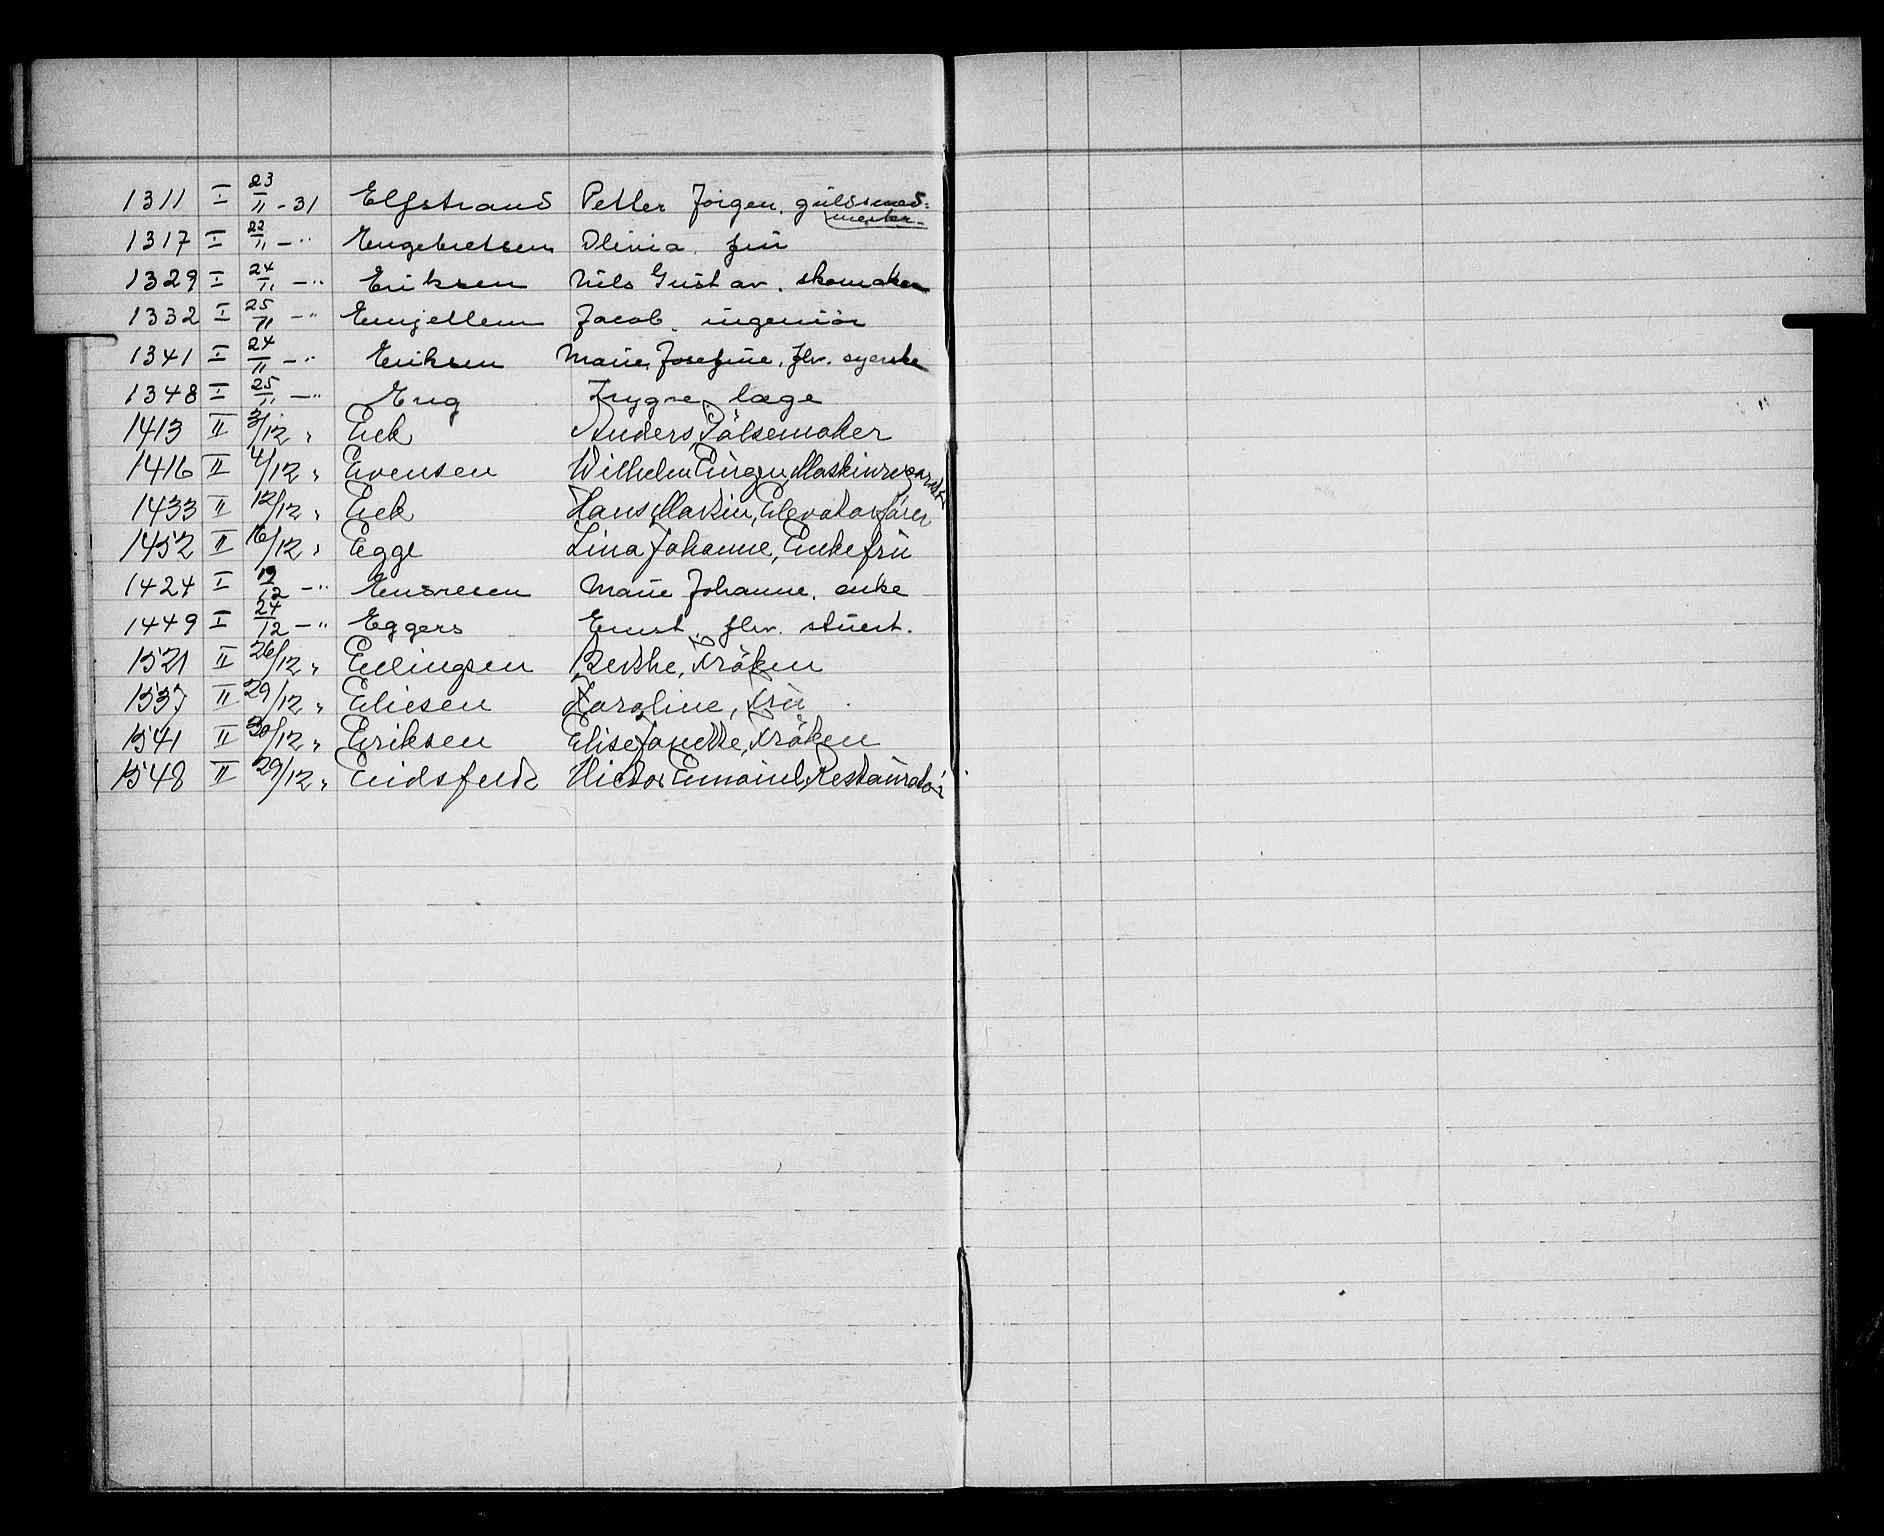 1311 I 23/11 - 31 Elfstrand Petter Jörgen, gullsmed-
mester.
1317 I 22/11 - " Engebretsen Olivia, fru
1329 I 24/11 - " Eriksen Nils Gustav, skomaker
1332 I 25/11 - " Emjellem Jacob, ingeniør
1341 I 24/11 - " Eriksen Marie Josefine, fhv. syerske
1348 I 25/11 - " Eng Trygve, læge
1413 II 3/12 " Eek Anders, Pölsemaker
1416 II 4/12 " Evensen Wilhelm Eugen, Maskinreparatör
1433 II 12/12 " Eek Hans Martin, Elevatorförer
1452 II 16/12 " Egge Lina Johanne, Enkefru
1424 I 19/12 - " Endresen Marie Johanne, enke
1449 I 24/12 - " Eggers Ernst, fhv. stuert.
1521 II 26/12 " Erlingsen Berthe, Fröken
1537 II 29/12 " Eliesen Karoline, Fru
1541 II 30/12 " Eriksen Elise Janette, Fröken
1548 II 29/12 " Eidsfeldt Victor Emanuel, Restauratör